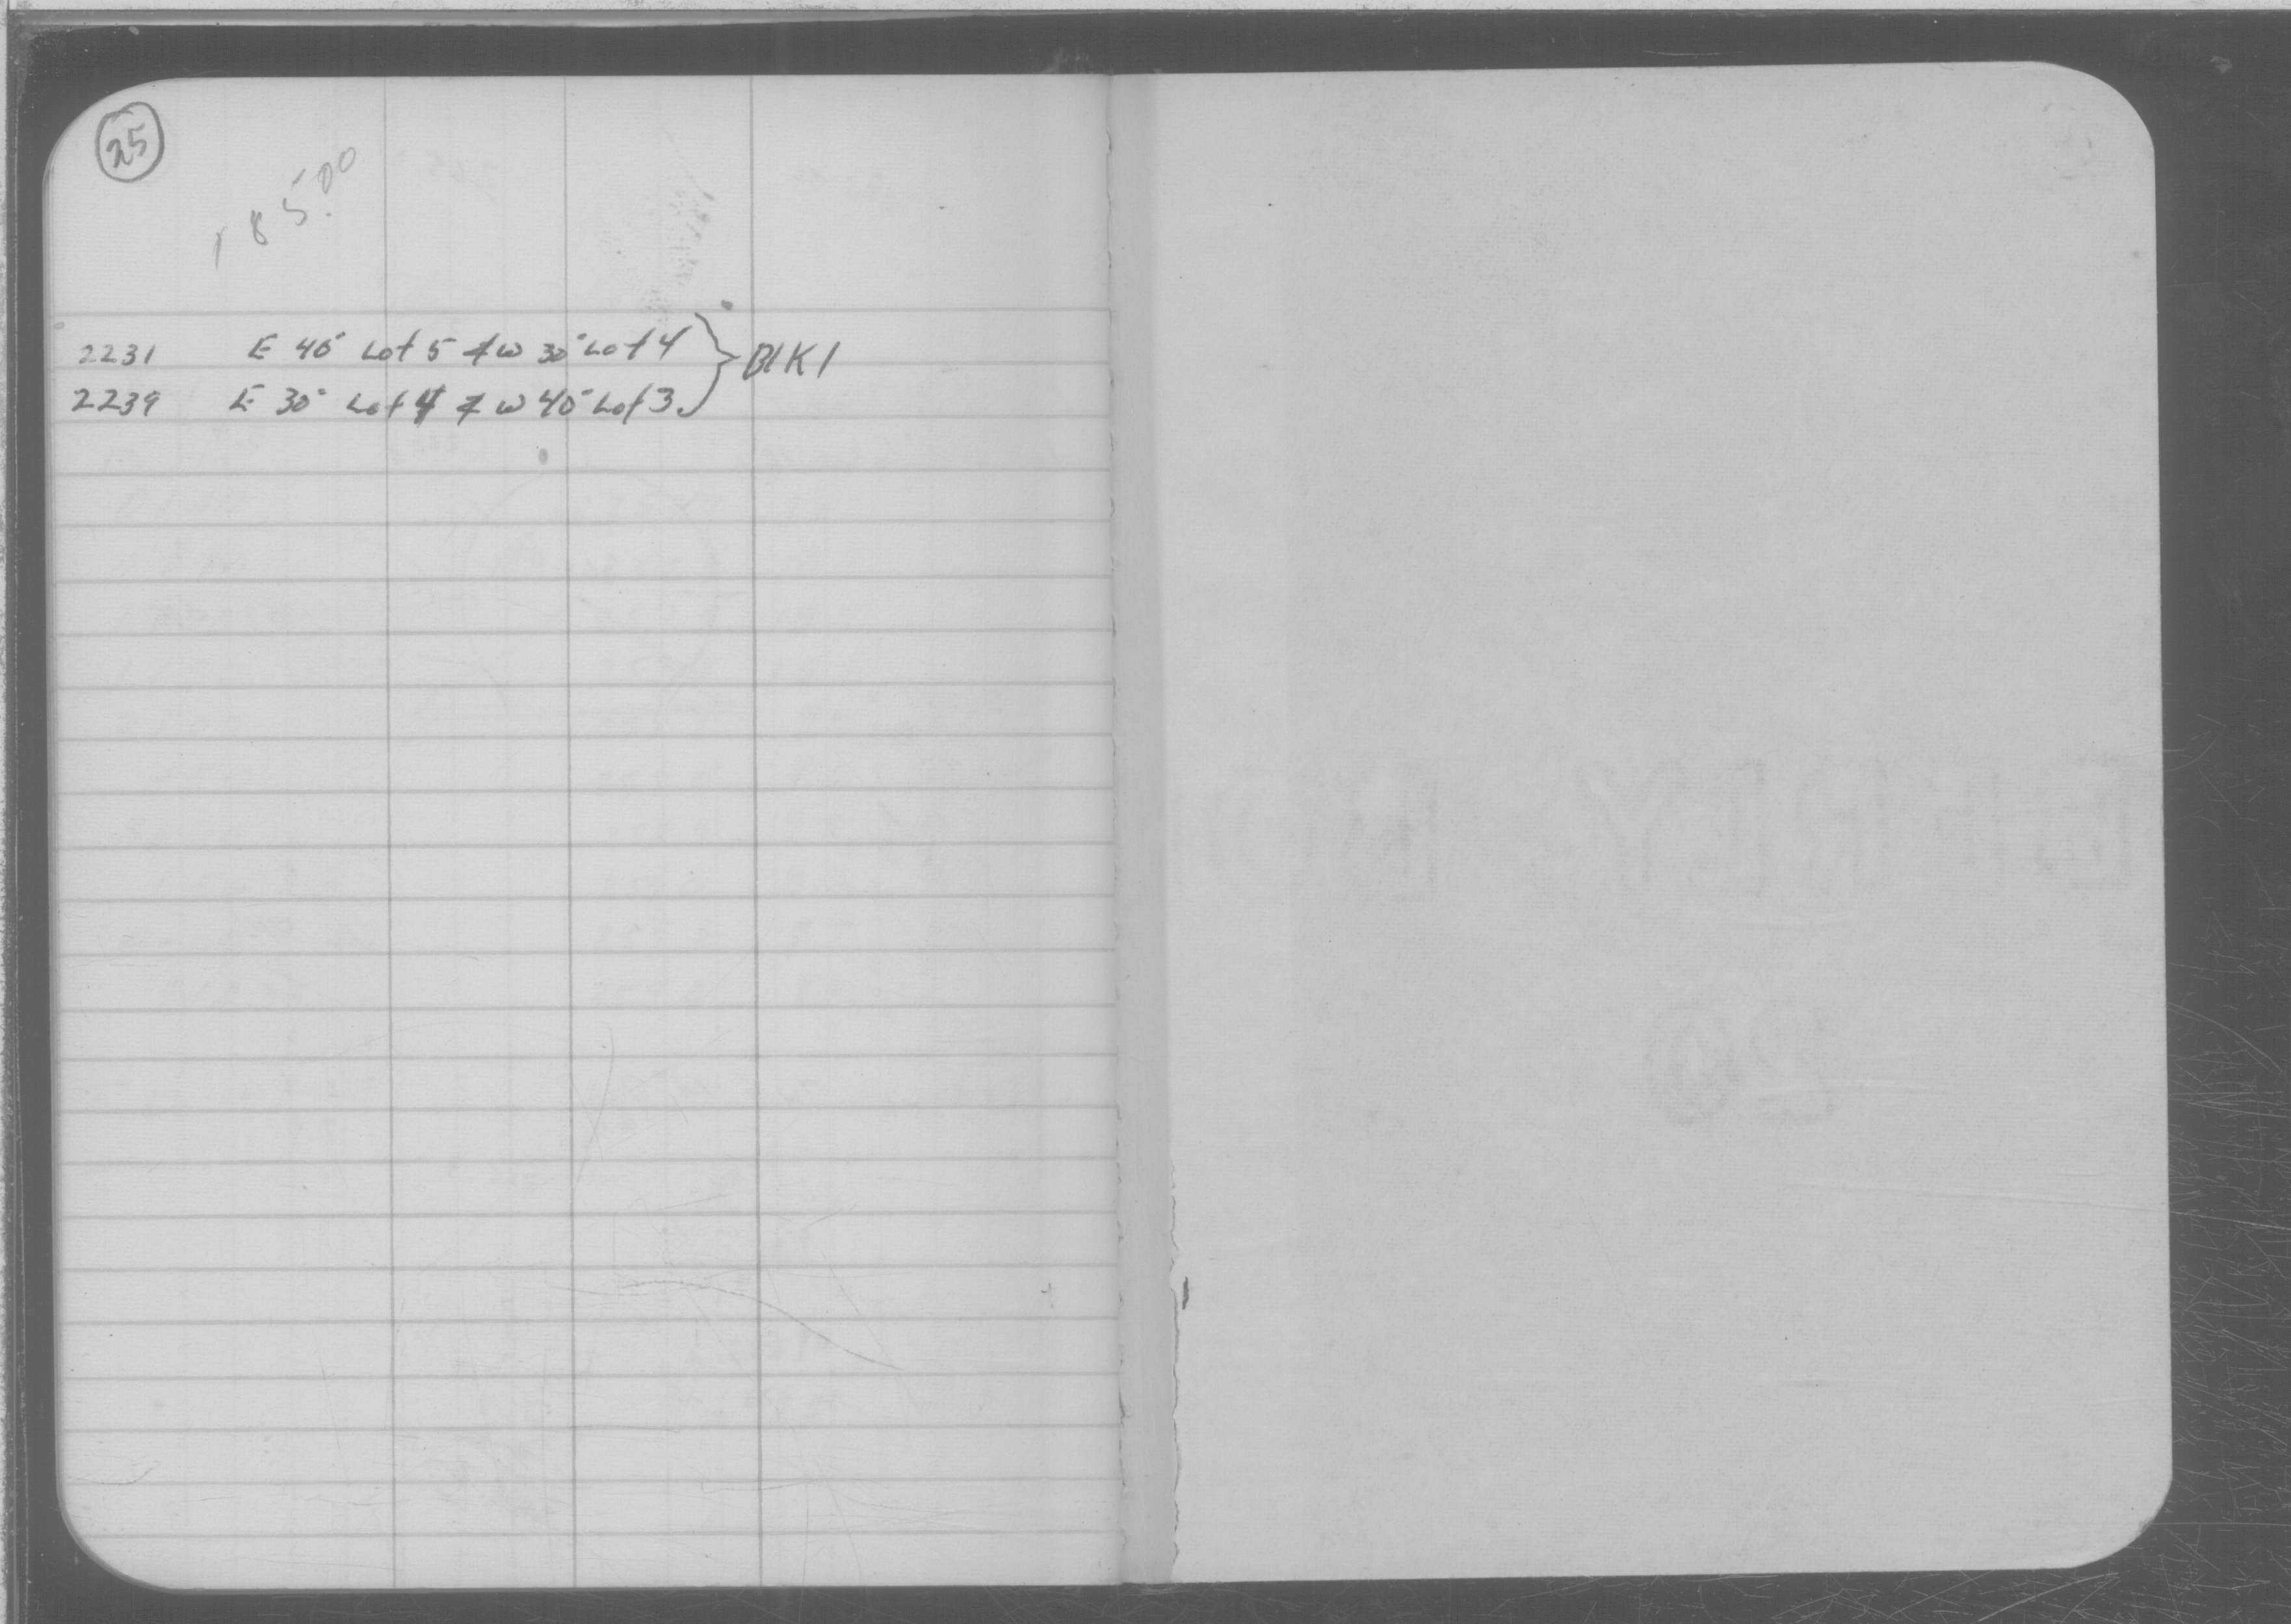 25
185.00
2231 E 40' Lot 5 & W 30' Lot 4 } Blk 1
2239 E 30' Lot 4 & W 40' Lot 3